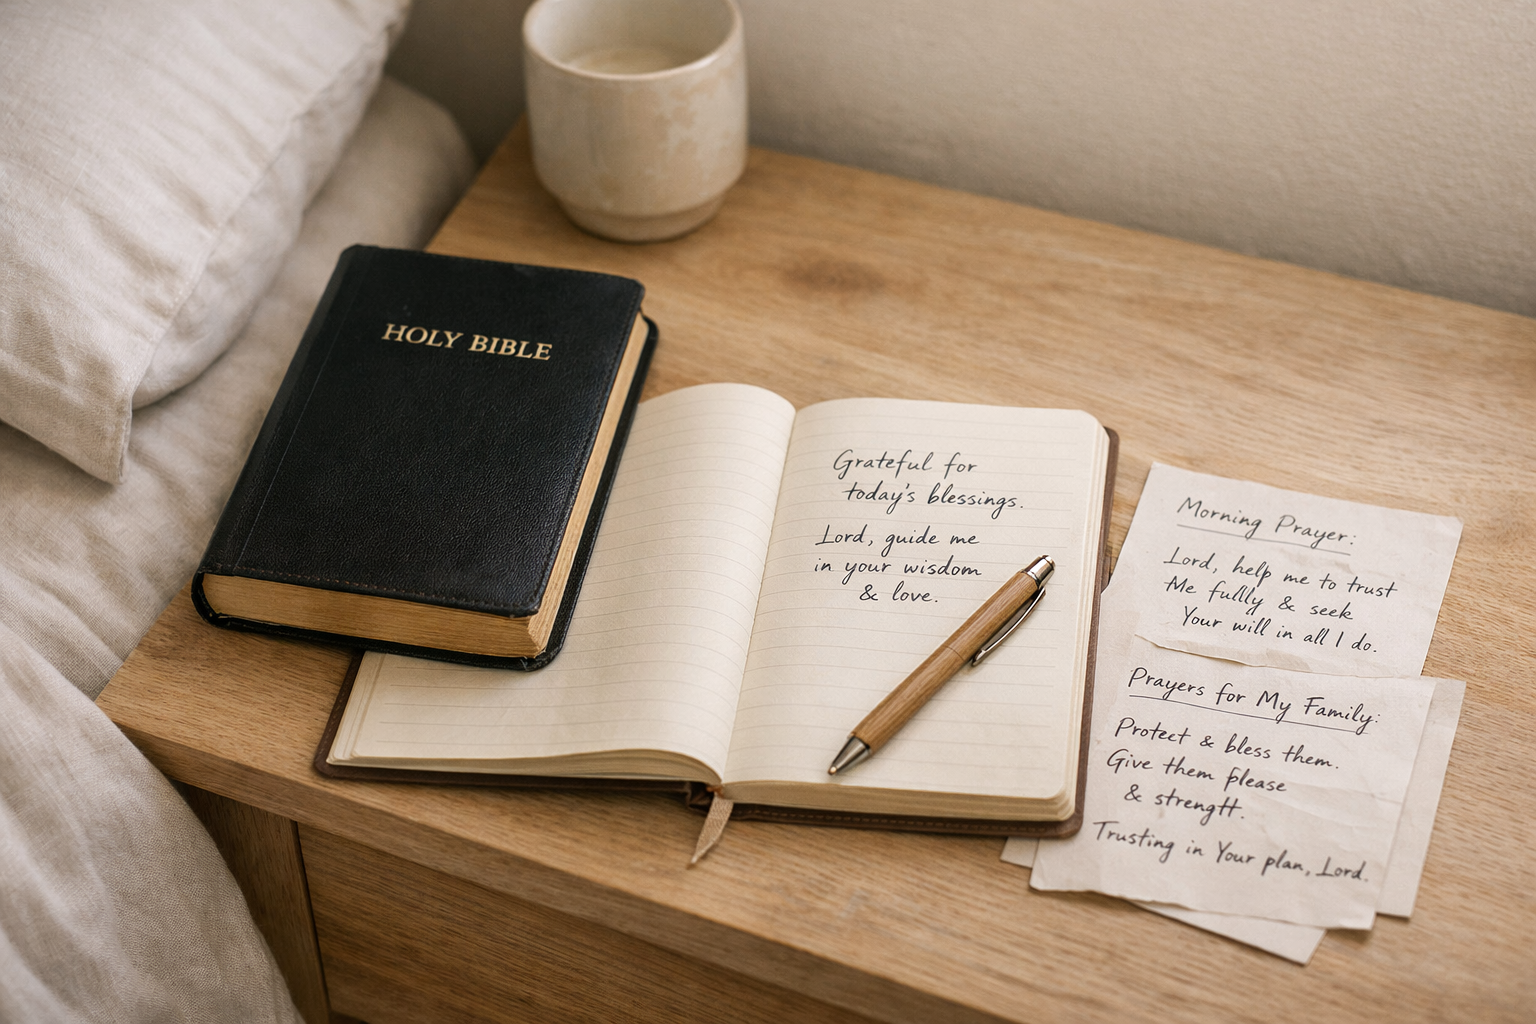 HOLY BIBLE
Grateful for
today's blessings.
Lord, guide me
in your wisdom
& love.
Morning Prayer:
Lord, help me to trust
Me fullly & seek
Your will in all I do.
Prayers for My Family:
Protect & bless them.
Give them please
& strengtt.
Trusting in Your plan, Lord.